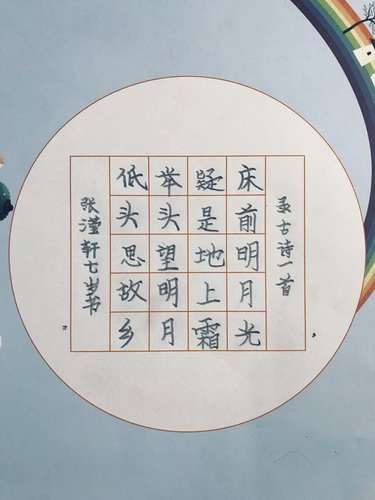 录古诗一首
床前明月光
疑是地上霜
举头望明月
低头思故乡
张滢轩七岁书